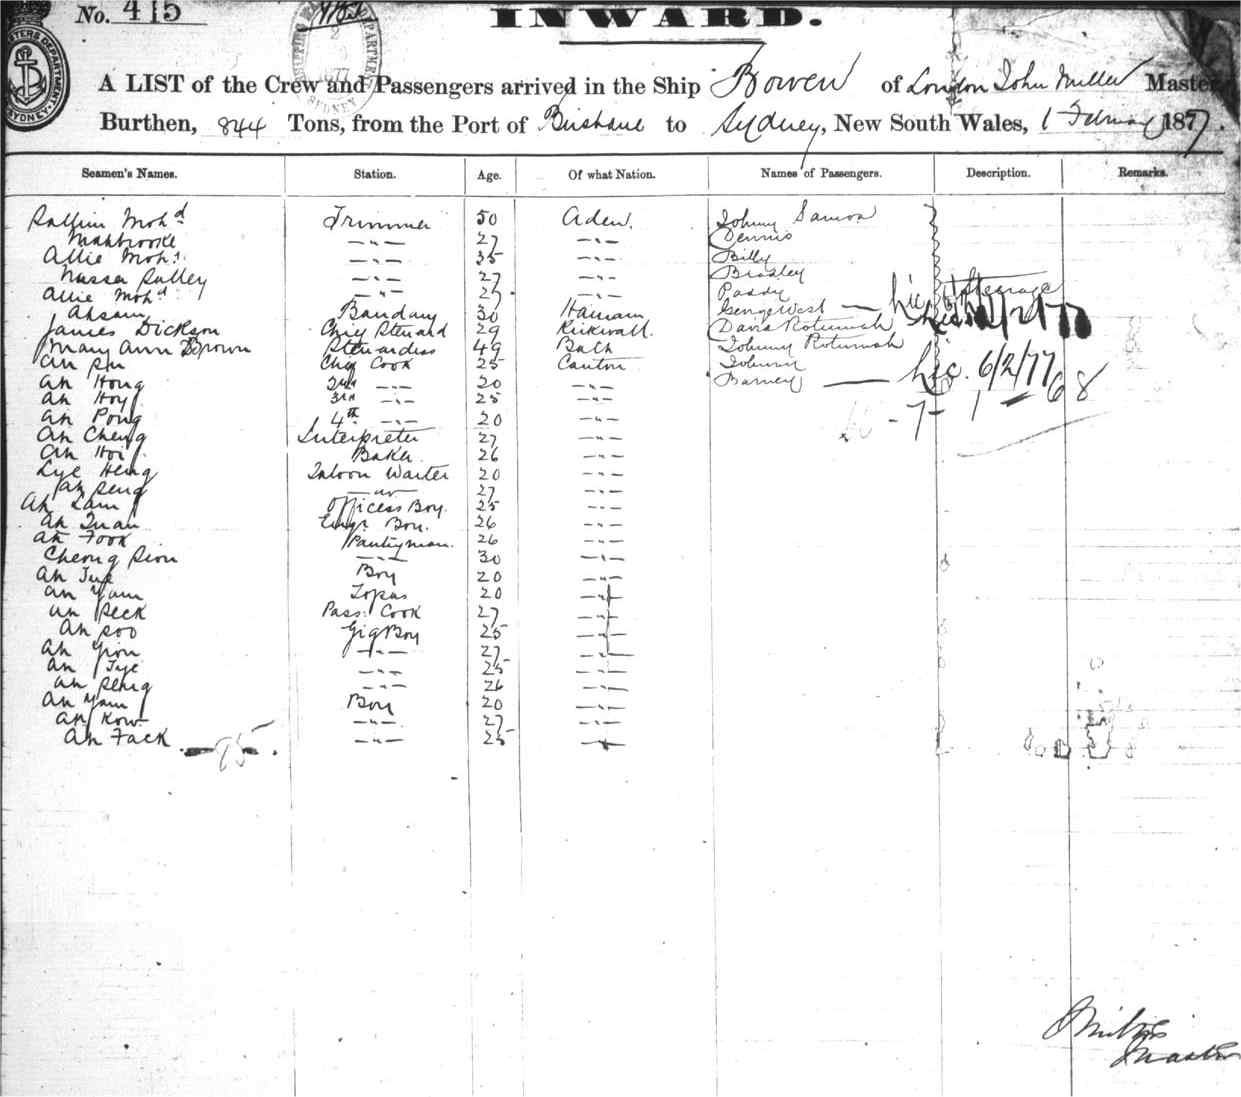 No. 415
INWARD.
A LIST of the Crew and Passengers arrived in the Ship Bowen of London John Miller Master
Burthen, 844 Tons, from the Port of Brisbane to Sydney, New South Wales, 1 February 1877.
Seamen's Names. Station. Age. Of what Nation. Names of Passengers. Description. Remarks.
Mohd Trimmer 50 Aden. Johnny Samoa
Mahbrooke —"— 27 —"— Dennis
Allie Mohd. —"— 35 —"— Billy
Nassa Salley —"— 27 —"— Bradley
Allie Mohd —"— 27 —"— Paddy Steerage
Ahsam 30 Hainam George West
James Dickson Chief Steward 29 Kirkwall. David Rotumah
Mary Ann Brown Stewardess 49 Bath Johnny Rotumah
Chief Cook 25 Canton
Ah Hong 2nd —"— 20 —"— Barney 6/2/77
Ah Hoy 3rd —"— 25 —"— 68
Ah Pong 4th —"— 20 —"— -7-1
Ah Cheng Interpreter 27 —"—
Ah Hoi Baker 26 —"—
Lye Heng Saloon Waiter 20 —"—
Ah Seng —"— 27 —"—
Ah Lam Officers Boy. 25 —"—
Ah Tuan Engr. Boy. 26 —"—
Ah Fook Pantryman. 26 —"—
Cheong Sion —"— 30 —"—
Ah Boy 20 —"—
Ah Yam Topas 20 —"—
Ah Peck Pass. Cook 27 —"—
Ah Soo Gig Boy 25 —"—
Ah Yion —"— 27 —"—
Ah Tye —"— 25 —"—
Ah Seng —"— 26 —"—
Ah Yam Boy 20 —"—
Ah Kow —"— 27 —"—
Ah Fack —"— 25 —"—
75
Master